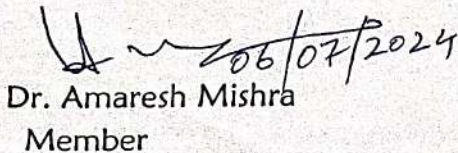 06/07/2024
Dr. Amaresh Mishra
Member